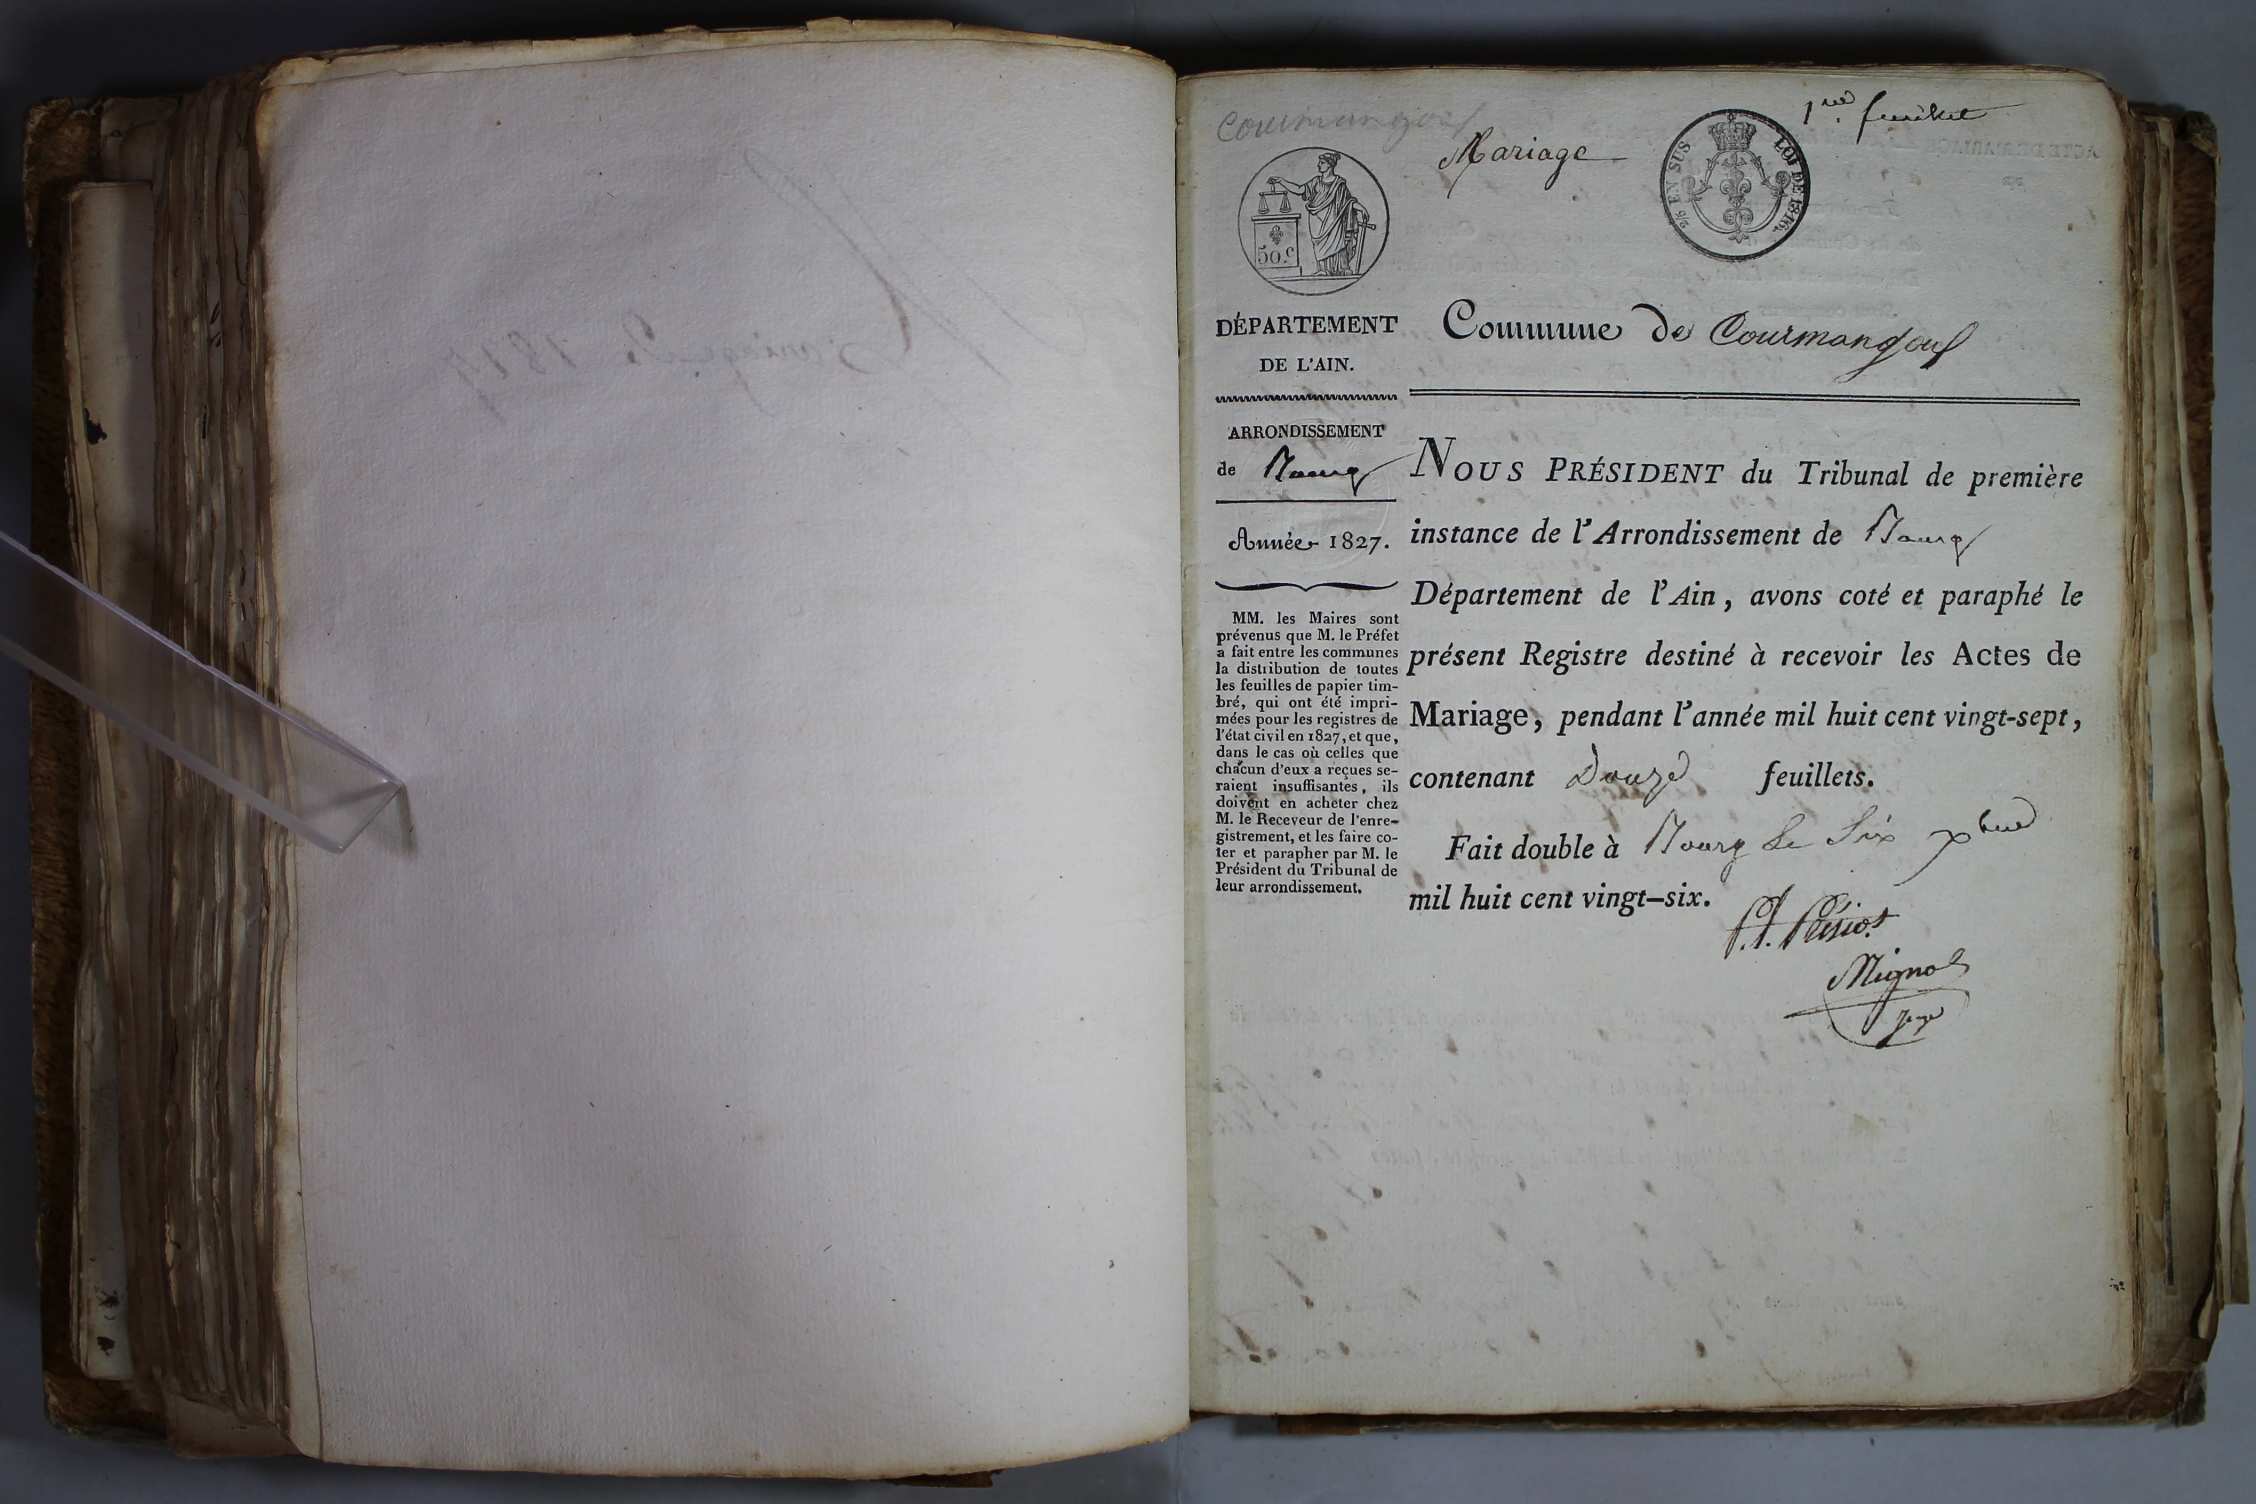 Courmangoux
1re feuillet
Mariage
2/5 EN SUS
LOI DE 1816.
50.c
DÉPARTEMENT
DE L'AIN.
ARRONDISSEMENT
de Bourg
Année 1827.
MM. les Maires sont
prévenus que M. le Préfet
a fait entre les communes
la distribution de toutes
les feuilles de papier tim-
bré, qui ont été impri-
mées pour les registres de
l'état civil en 1827, et que,
dans le cas où celles que
chacun d'eux a reçues se-
raient insuffisantes, ils
doivent en acheter chez
M. le Receveur de l'enre-
gistrement, et les faire co-
ter et parapher par M. le
Président du Tribunal de
leur arrondissement.
Commune de Courmangoux
NOUS PRÉSIDENT du Tribunal de première
instance de l'Arrondissement de Bourg
Département de l'Ain, avons coté et paraphé le
présent Registre destiné à recevoir les Actes de
Mariage, pendant l'année mil huit cent vingt-sept,
contenant Douze feuillets.
Fait double à Bourg le Six xbre
mil huit cent vingt-six.
Mignot
Juge